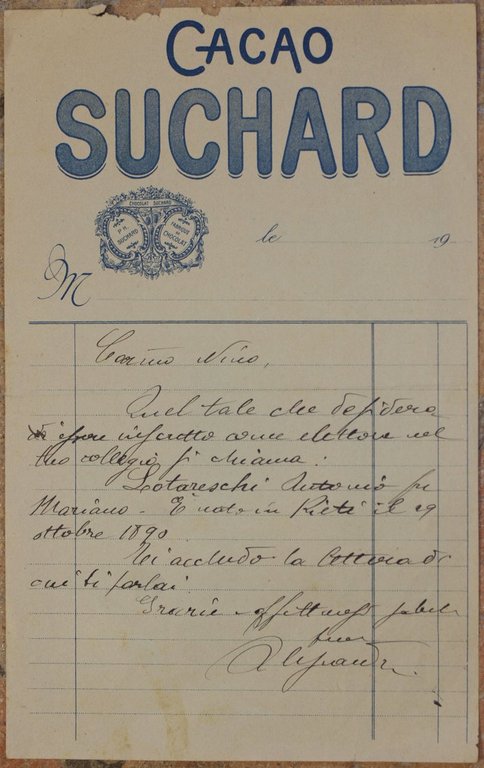 CACAO
SUCHARD
CHOCOLAT SUCHARD
PH. SUCHARD
FABRIQUE DE CHOCOLAT
le 19
M
Carmo Nino,
Quel tale che desidera
di essere inscritto come elettore nel
tuo collegio si chiama:
Lotareschi Antonio fu
Mariano - È nato in Rieti il 29
ottobre 1890
Ti accludo la lettera di
cui ti parlai.
Grazie - saluti
tuo